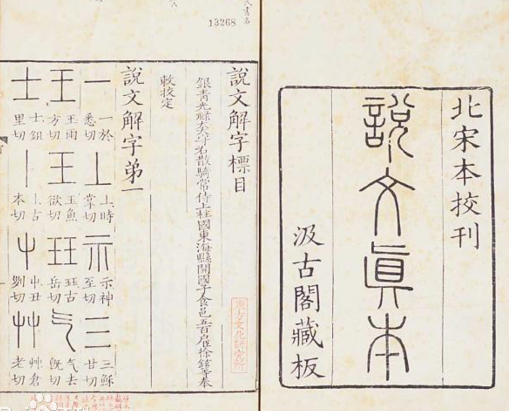 13268
北宋本挍刊
說文眞本
汲古閣藏板
說文解字標目
銀青光祿大夫守右散騎常侍上柱國東海縣開國子食邑五百戶臣徐鉉等奉
敕挍定
說文解字弟一
一 一於悉切 丄 丄時掌切 示 示神至切 三 三穌甘切
王 王雨方切 玉 玉魚欲切 玨 玨古岳切 气 气去旣切
士 士鉏里切 丨 丨古本切 屮 屮丑列切 艸 艸倉老切